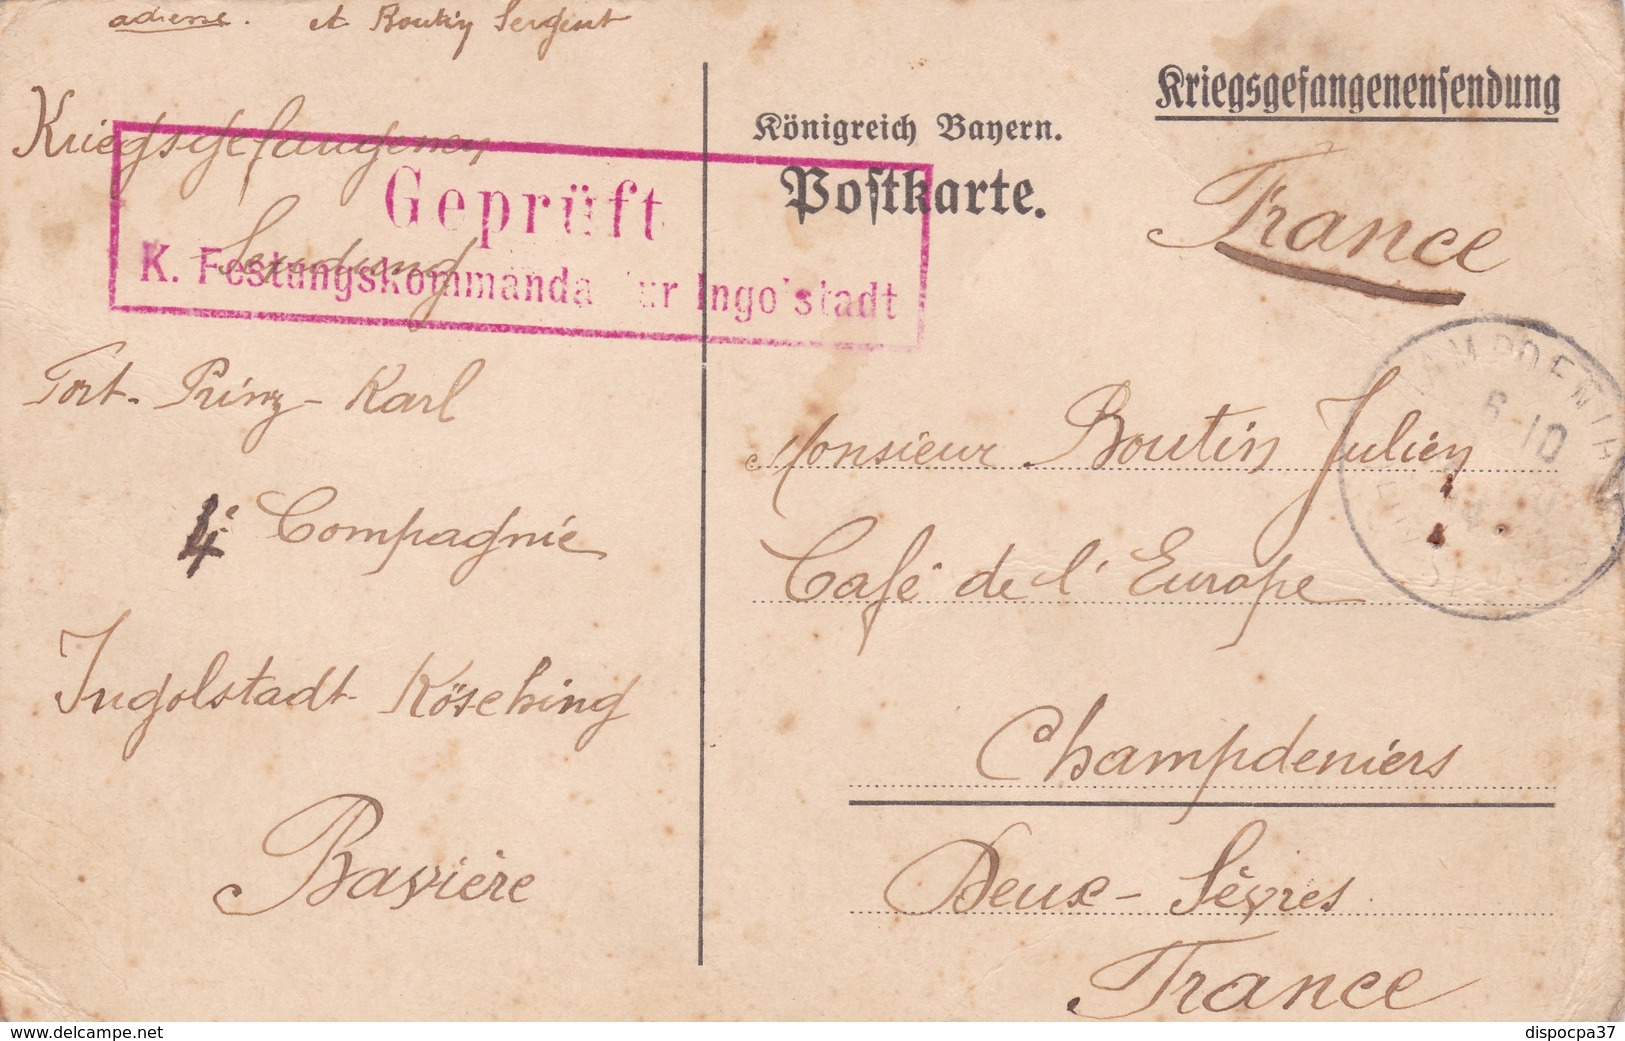 adresse. et Boutin Sergent
Kriegsgefangenen
Sendung
Geprüft
K. Festungskommanda ur Ingolstadt
Fort-Prinz-Karl
4e Compagnie
Ingolstadt-Kösching
Bavière
Kriegsgefangenensendung
Königreich Bayern.
Postkarte.
France
6-10
Monsieur Boutin Julien
Café de l'Europe
Champdeniers
Deux-Sèvres
France
www.delcampe.net
dispocpa37